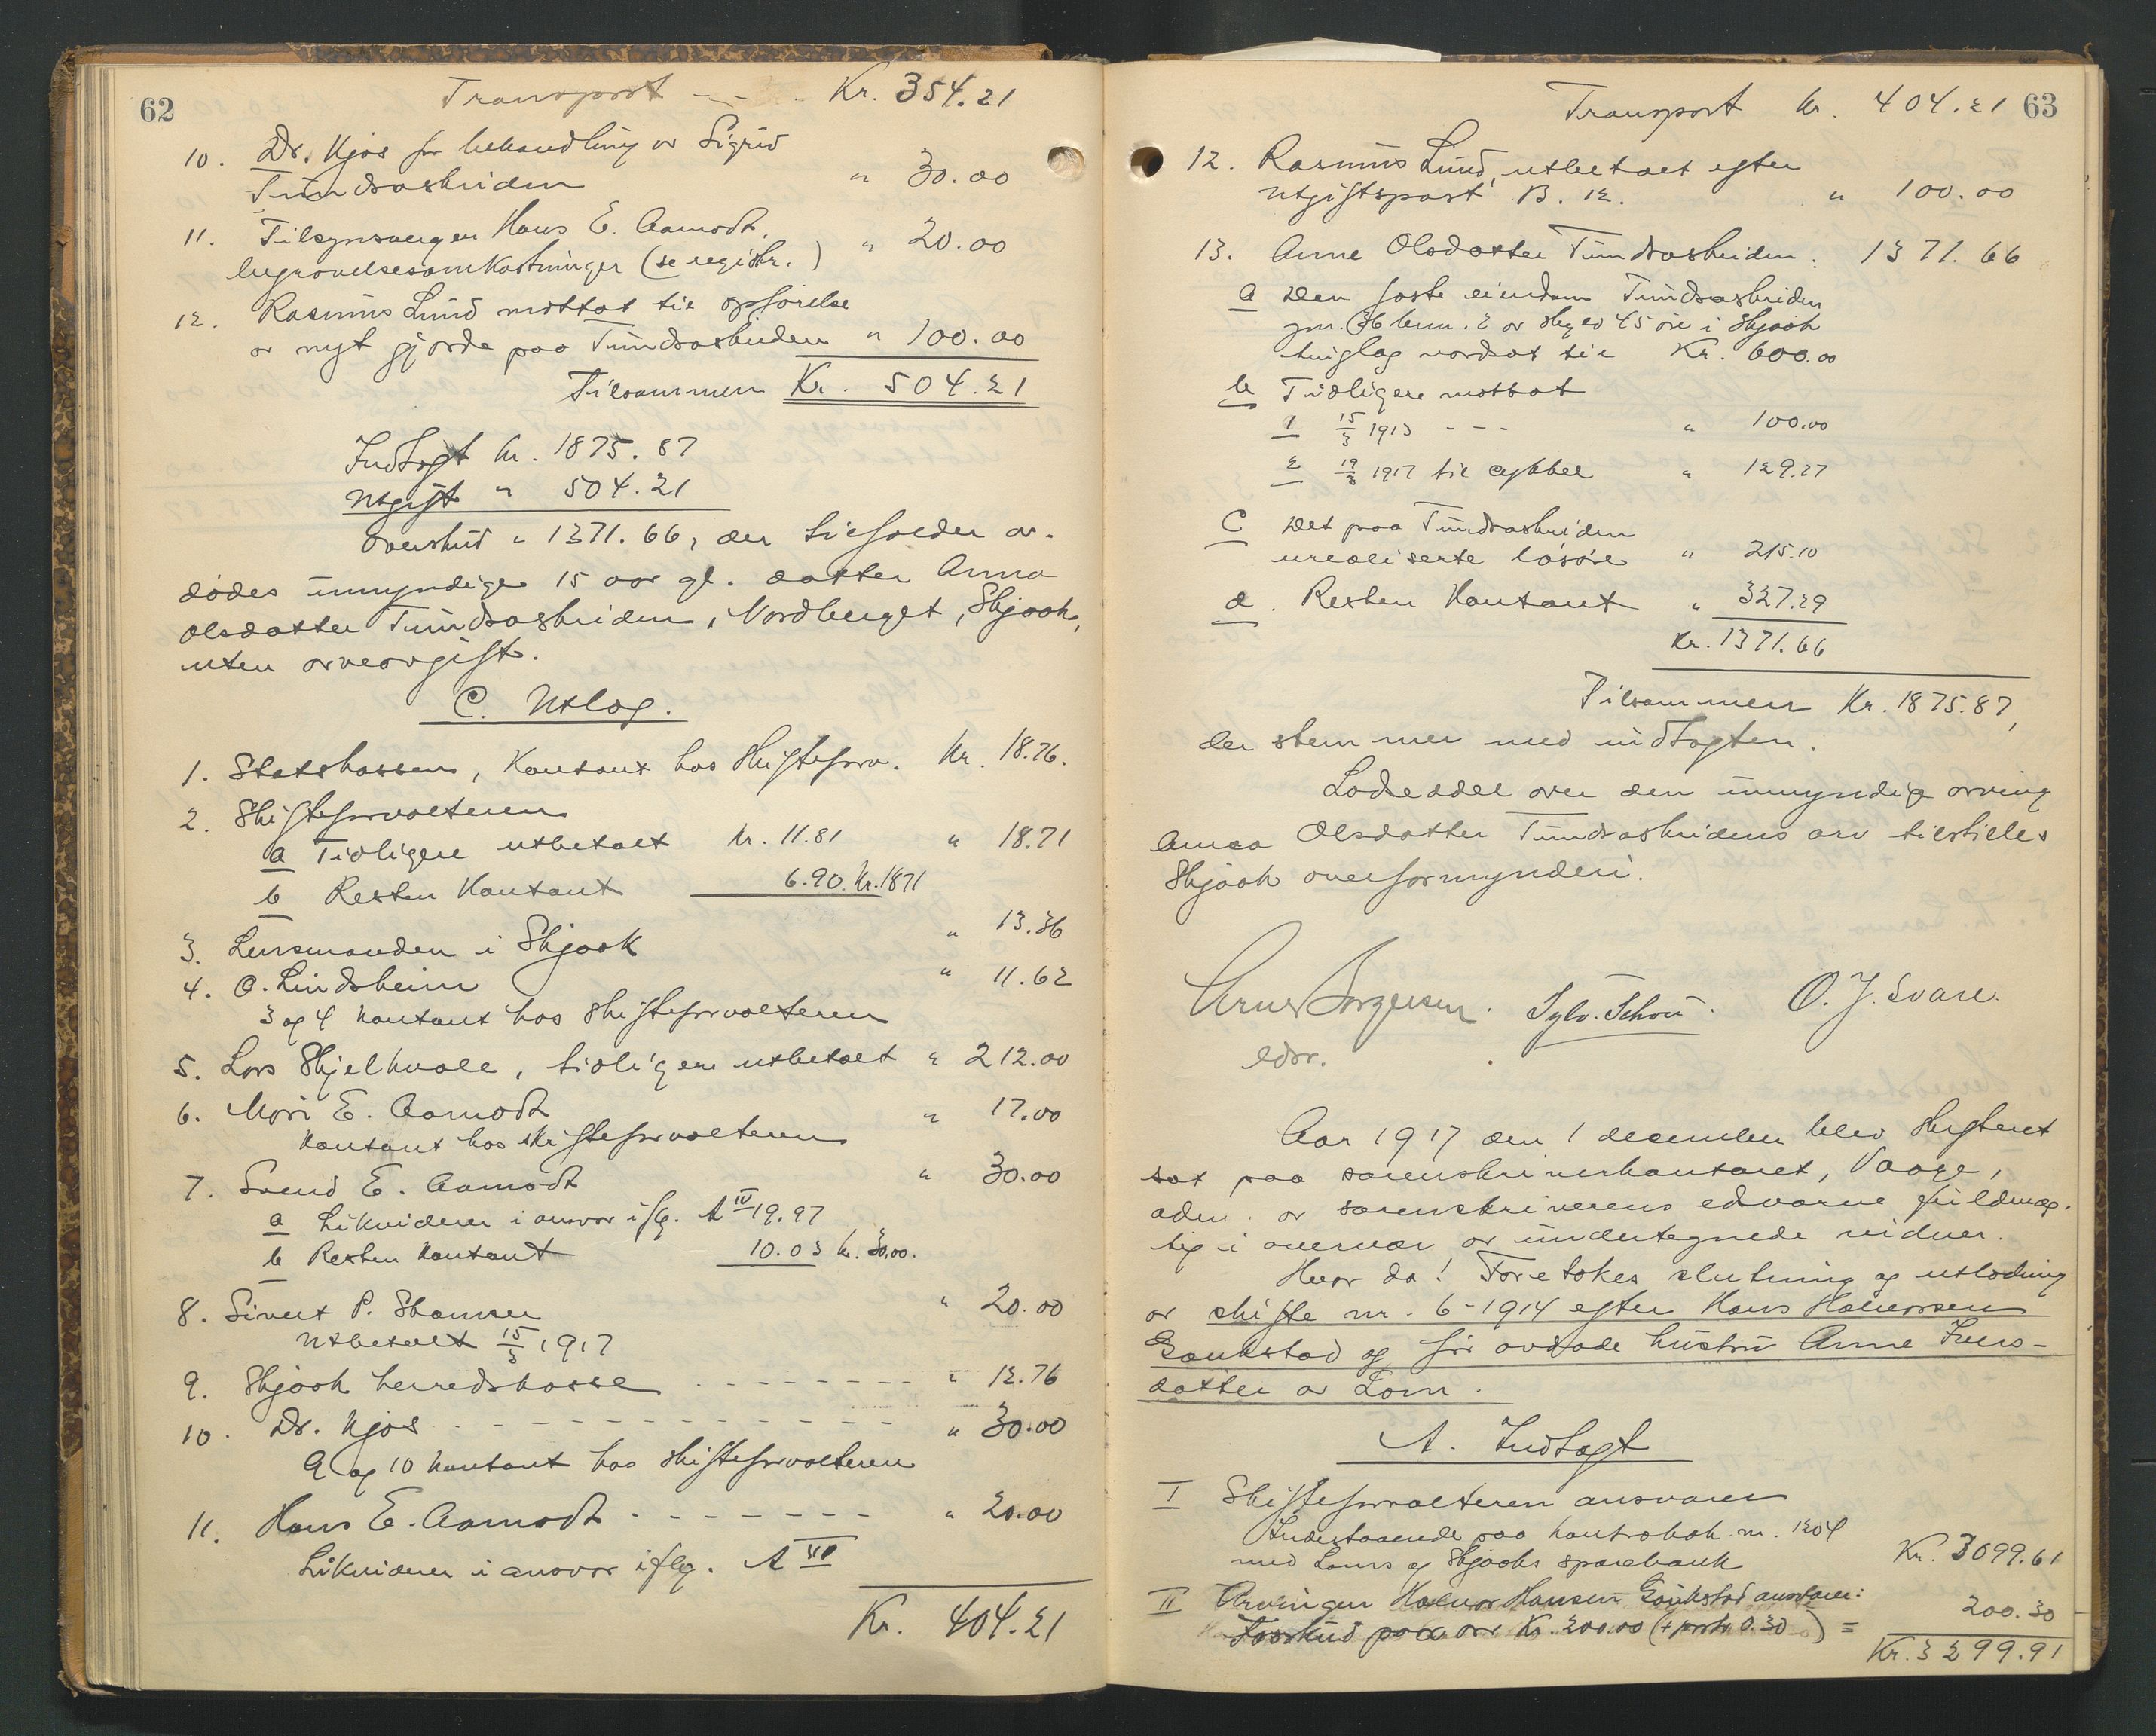 62
Transport - - - Kr. 354.21
10. Dr. Kjos for behandling av Sigrid
Tundrasbriden " 30.00
11. Tilsynsvergen Hans E. Aamodt,
begravelsesomkostninger (se registr.) " 20.00
12. Rasmus Lund mottat til opførelse
av nyt gjærde paa Tundrasbriden " 100.00
Tilsammen Kr. 504.21
Indtægt kr. 1875.87
Utgift " 504.21
Overskud " 1371.66, der tilfalder av-
dødes umyndige 15 aar gl. datter Anna
Olsdatter Tundrasbriden, Nordberget, Skjaak,
uten arveavgift.
C. Utlæg.
1. Statskassen, Kontant hos skifteforv. Kr. 18.76.
2. Skifteforvalteren
a Tidligere utbetalt kr. 11.81 " 18.71
b Resten Kontant 6.90. Kr. 1871
3. Lensmanden i Skjaak " 13.36
4. O. Lindsheim " 11.62
3 og 4 kontant hos skifteforvalteren
5. Lars Skjelkvale, tidligere utbetalt " 212.00
6. Mari E. Aamodt " 17.00
kontant hos skifteforvalteren
7. Svend E. Aamodt " 30.00
a Likviderer i ansvar iflg. A IV 19.97
b Resten kontant 10.03 kr. 30.00.
8. Sivert P. Skamsar " 20.00
Utbetalt 15/3 1917
9. Skjaak herredskasse - - - - - - - - " 12.76
10. Dr. Kjos - - - - - - - - - - - " 30.00
9 og 10 kontant hos skifteforvalteren
11. Hans E. Aamodt - - - - - - - " 20.00
Likviderer i ansvar iflg. A III
Kr. 404.21
Transport kr. 404.21 63
12. Rasmus Lund, utbetalt efter
utgiftspost B. 12. " 100.00
13. Anne Olsdatter Tundrasbriden: 1371.66
a Den faste eiendom Tundrasbriden
gnr. 36 brnr. 2 av skyld 45 øre i Skjaak
tinglag værdsat til Kr. 600.00
b Tidligere mottat
1 15/3 1913 - - - " 100.00
2 19/3 1917 til cykkel " 129.27
C Det paa Tundrasbriden
urealiserte løsøre " 215.10
d. Resten Kontant " 327.29
Kr. 1371.66
Tilsammen Kr. 1875.87,
der stemmer med indtægten.
Lodseddel over den umyndige arving
Anna Olsdatter Tundrasbridens arv tilstilles
Skjaak overformynderi.
Arne Jørgensen. Sylv. Schou. O. J. Svare.
edsv.
Aar 1917 den 1 december blev skifteret
sat paa sorenskriverkontoret, Vaage,
adm. av sorenskriverens edsvorne fuldmæg-
tig i overvær av undertegnede vidner.
Hvor da! Foretokes slutning og utlodning
av skifte nr. 6-1914 efter Hans Halvorsen
Graukstad og før avdøde hustru Anne Ivers-
datter av Lom.
A. Indtægt
I Skifteforvalteren ansvarer
Indestaaende paa kontrabok nr. 1204
med Loms og Skjaaks sparebank Kr. 3099.61
II Arvingen Halvor Hansen Graukstad ansvarer:
Forskud paa arv Kr. 200.00 (+ porto 0.30) = 200.30
Kr. 3299.91